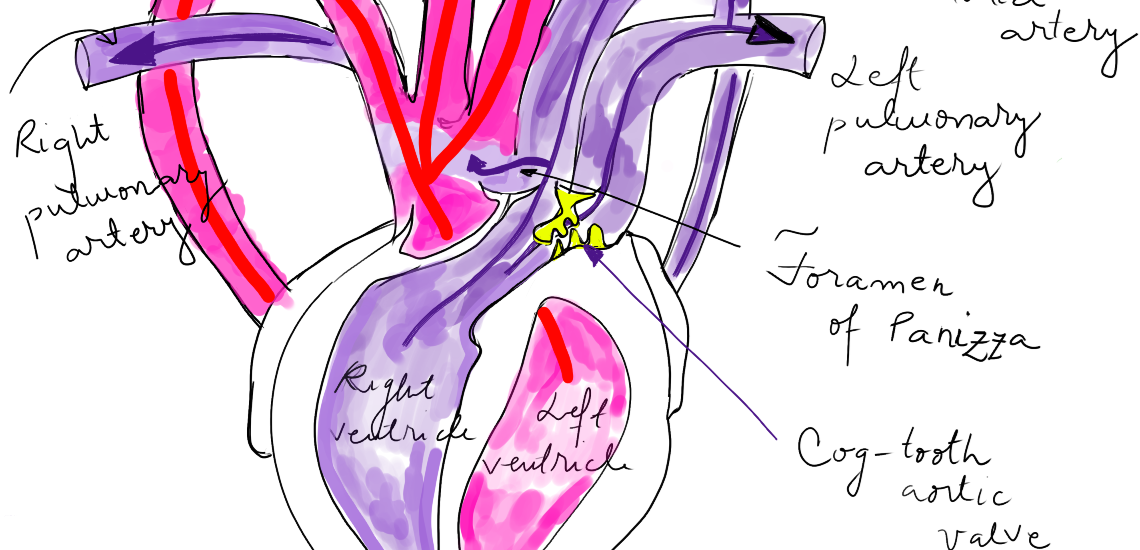 artery
Left
pulmonary
artery
Right
pulmonary
artery
Foramen
of Panizza
Right
ventricle
Left
ventricle
Cog-tooth
aortic
valve